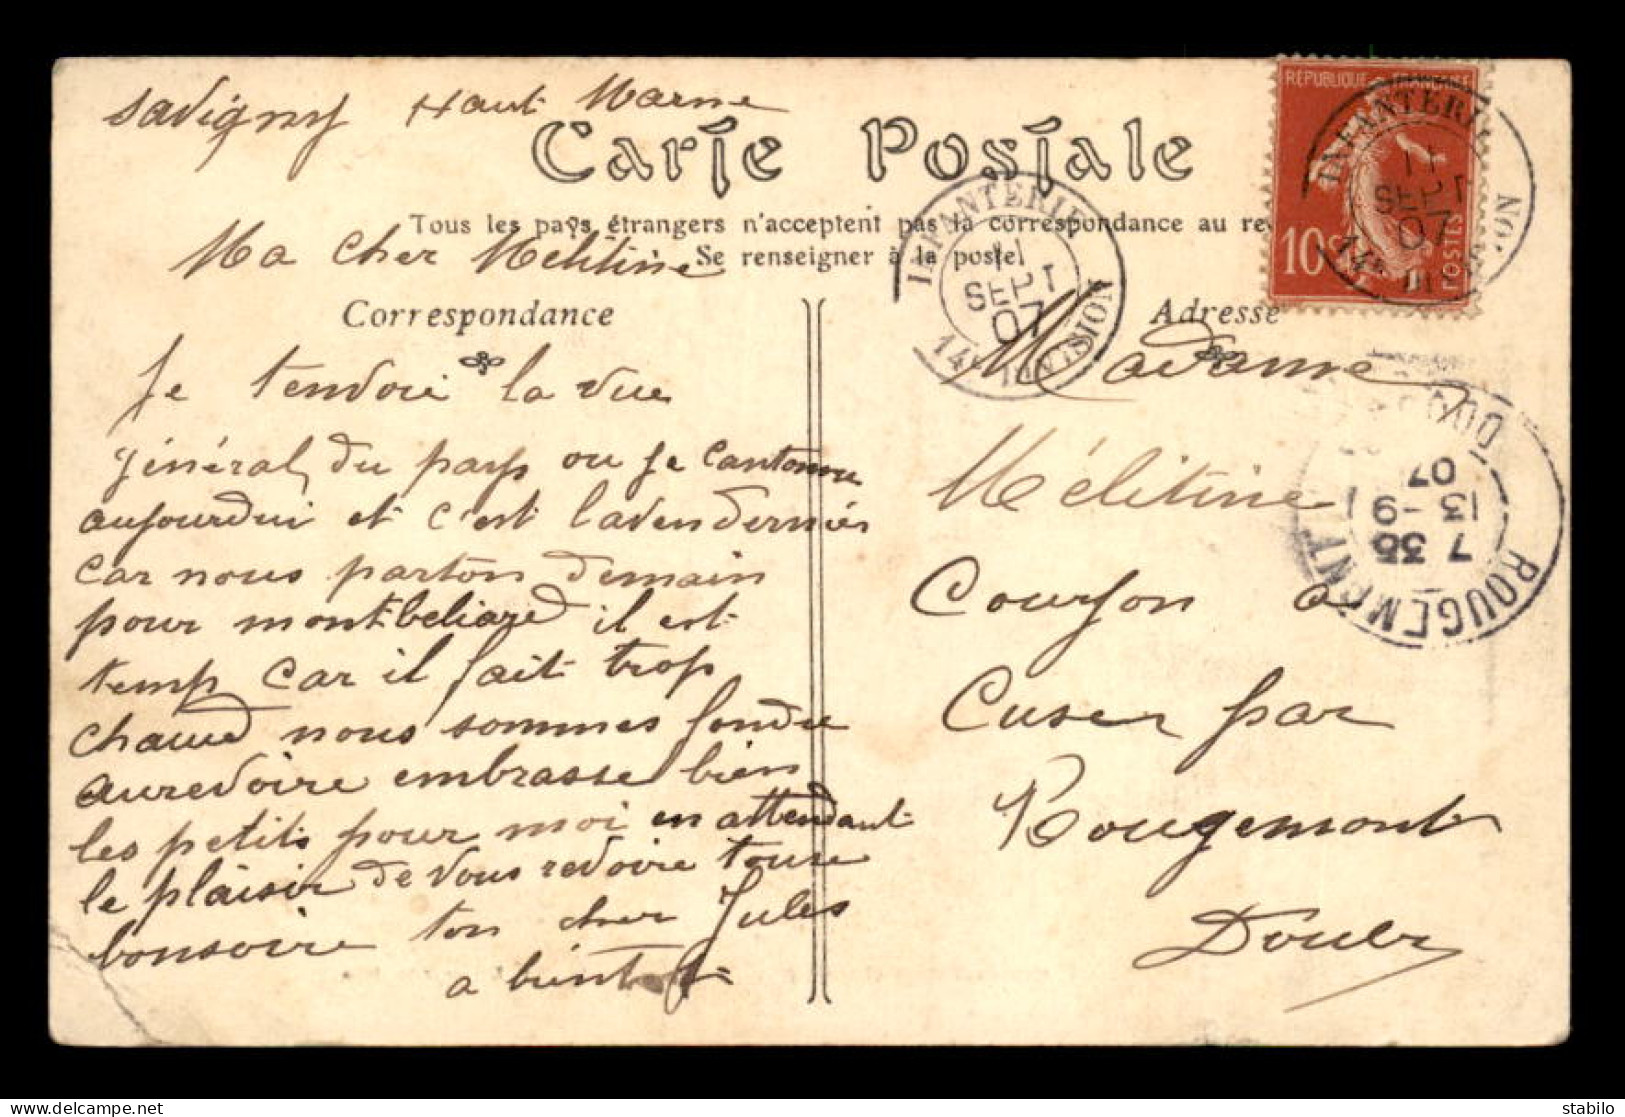 Savigny Haut Marne
Carte Postale
Tous les pays étrangers n'acceptent pas la correspondance au re
Se renseigner à la poste
Ma cher Melitine
Correspondance
Je tendoie la vue
général du pays ou je cantonne
aujourdui et c'est lavendernier
car nous parton demain
pour montbeliard il est
temp car il fait trop
chaud nous sommes fondu
auredvoire embrasse bien
les petits pour moi en attendant
le plaisir de vous redvoire tous
bonsoire ton cher Jules
a bientot
Adresse
Madame
Mélitine
Courson a
Cuse par
Rougemont
Doubs
REPUBLIQUE FRANCAISE
10c
POSTES
INFANTERIE
11
SEPT
07
14e DIVISION
INFANTERIE
11
SEPT
07
14e DIVISION
ROUGEMONT
7 35
13 -9
07
DOUBS
stabilo
delcampe.net